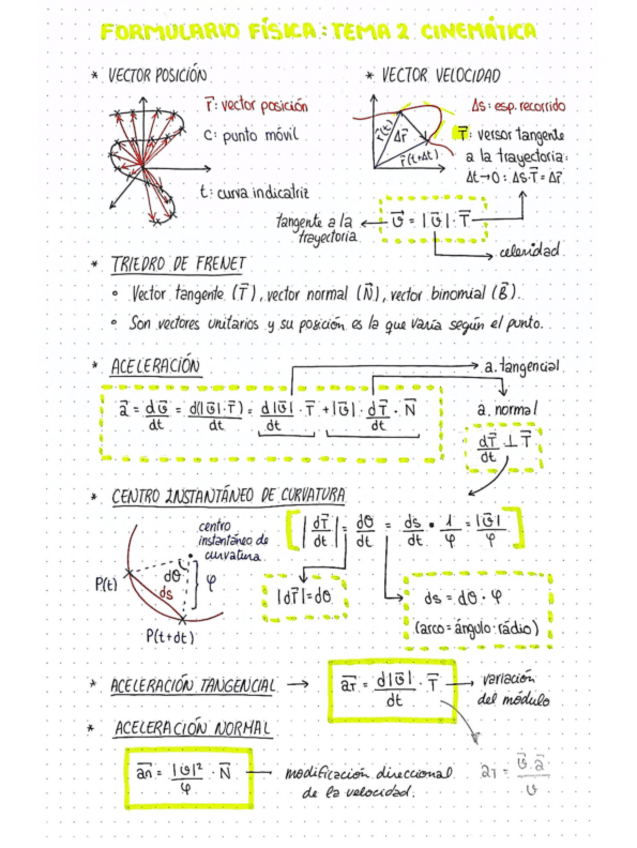 FORMULARIO FÍSICA: TEMA 2 CINEMÁTICA
* VECTOR POSICIÓN
r⃗: vector posición
C: punto móvil
t: curva indicatriz
* VECTOR VELOCIDAD
r⃗(t)
Δr⃗
r⃗(t+Δt)
Δs: esp. recorrido
T⃗: versor tangente
a la trayectoria:
Δt→0: Δs·T⃗ = Δr⃗
tangente a la ← v⃗ = |v⃗|·T⃗
trayectoria
→ celeridad
* TRIEDRO DE FRENET
∘ Vector tangente (T⃗), vector normal (N⃗), vector binomial (B⃗).
∘ Son vectores unitarios y su posición es la que varía según el punto.
* ACELERACIÓN
→ a. tangencial
a⃗ = dv⃗/dt = d(|v⃗|·T⃗)/dt = d|v⃗|/dt · T⃗ + |v⃗| · dT⃗/dt · N⃗
a. normal
dT⃗/dt ⊥ T⃗
* CENTRO INSTANTÁNEO DE CURVATURA
centro
instantáneo de
curvatura
dθ
φ
ds
P(t)
P(t+dt)
[|dT⃗/dt| = dθ/dt = ds/dt · 1/φ = |v⃗|/φ]
|dT⃗|=dθ
ds = dθ · φ
(arco = ángulo · rádio)
* ACELERACIÓN TANGENCIAL → a⃗T = d|v⃗|/dt · T⃗ → variación
del módulo
* ACELERACIÓN NORMAL
a⃗n = |v|²/φ · N⃗ — modificación direccional
de la velocidad.
aT = v⃗·a⃗/v